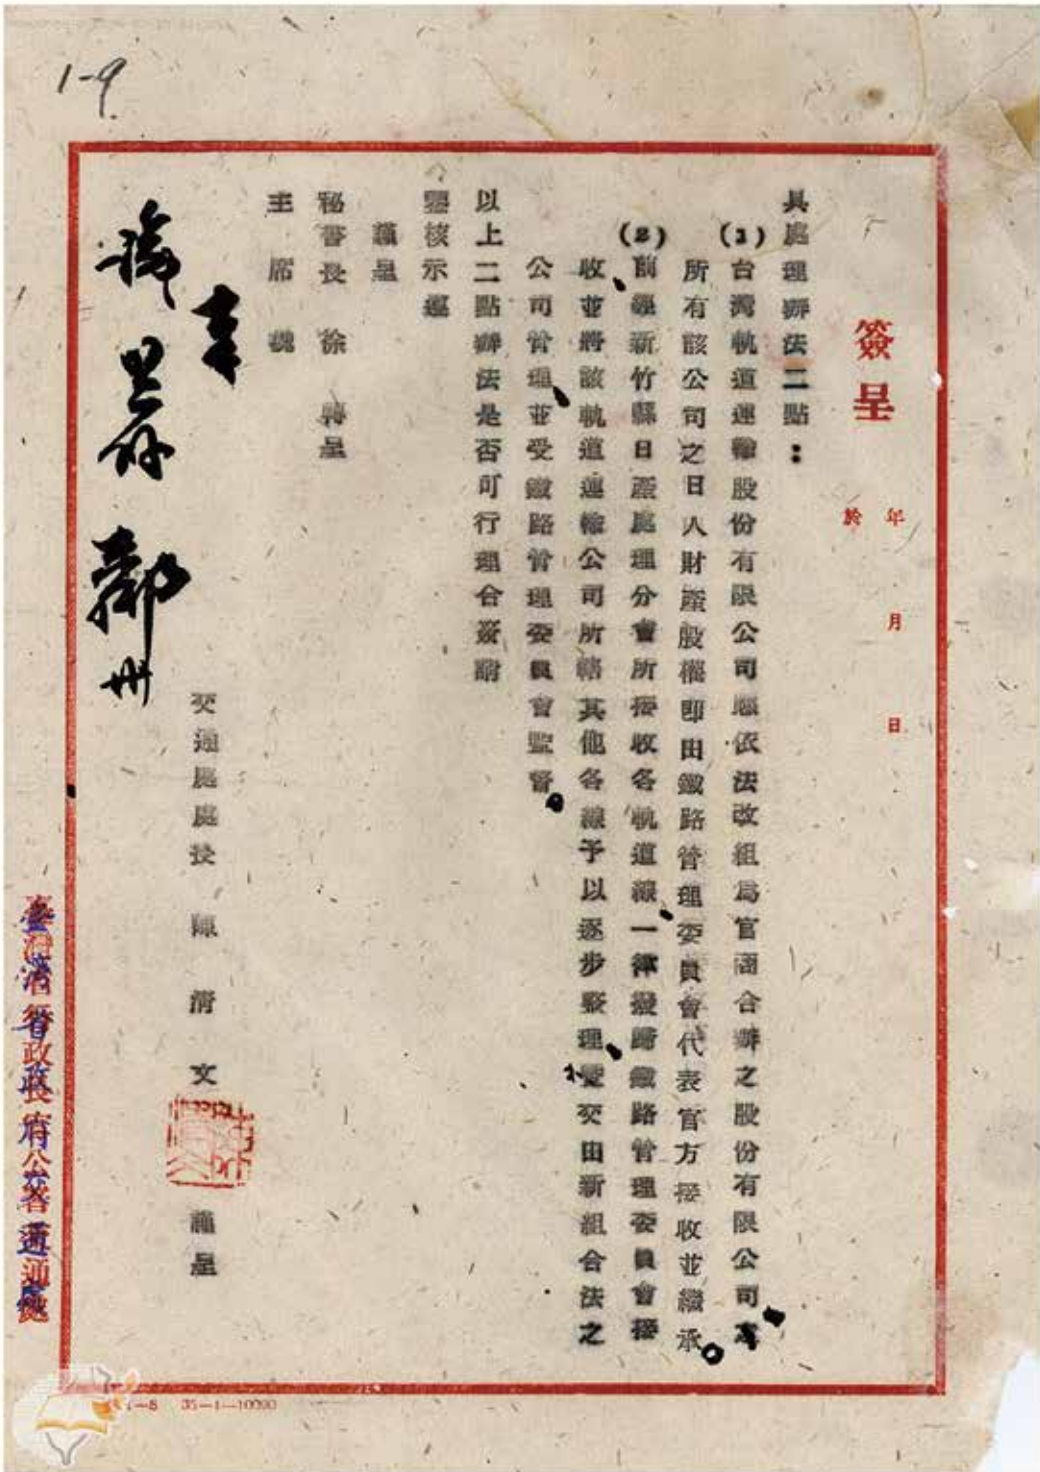 1-9
簽呈
年 月 日
於
具處理辦法二點：
(1)台灣軌道運輸股份有限公司應依法改組為官商合辦之股份有限公司
所有該公司之日人財產股權即由鐵路管理委員會代表官方接收並繼承
(2)前經新竹縣日產處理分會所接收各軌道線一律撥歸鐵路管理委員會接
收並將該軌道運輸公司所轄其他各線予以逐步整理交由新組合法之
公司管理並受鐵路管理委員會監督
以上二點辦法是否可行理合簽請
鑒核示遵
謹呈
秘書長 徐 轉呈
主席 魏
交通處處長 陳清文 謹呈
臺灣省政府交通處
臺灣省行政長官公署交通處
35-1-10000